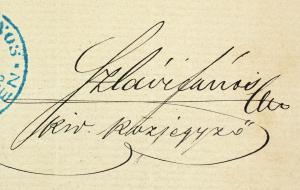 Szlávi János
kir. közjegyző